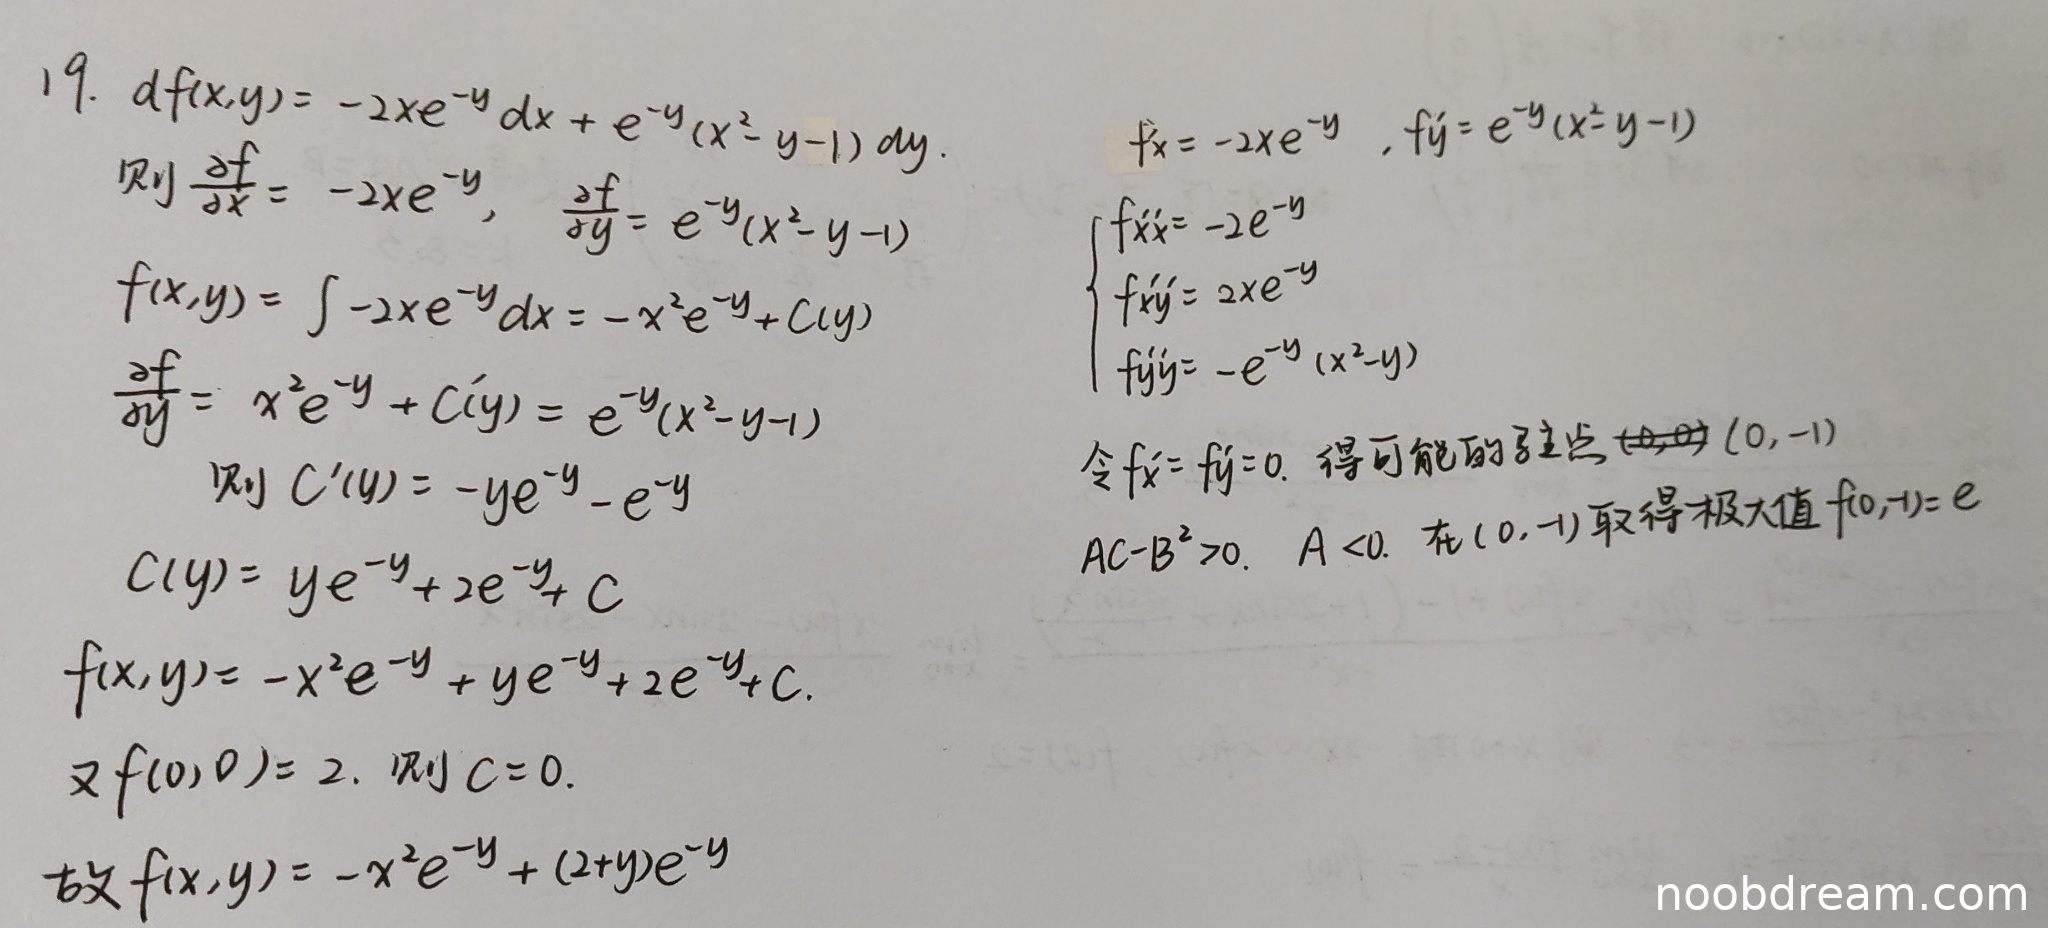 19. df(x,y) = -2xe^{-y}dx + e^{-y}(x²-y-1)dy.
则 ∂f/∂x = -2xe^{-y}, ∂f/∂y = e^{-y}(x²-y-1)
f(x,y) = ∫-2xe^{-y}dx = -x²e^{-y}+C(y)
∂f/∂y = x²e^{-y} + C'(y) = e^{-y}(x²-y-1)
则 C'(y) = -ye^{-y} - e^{-y}
C(y) = ye^{-y}+2e^{-y}+C
f(x,y) = -x²e^{-y} + ye^{-y}+2e^{-y}+C.
又f(0,0) = 2. 则C=0.
故f(x,y) = -x²e^{-y} + (2+y)e^{-y}
f'x = -2xe^{-y} , f'y = e^{-y}(x²-y-1)
f''xx = -2e^{-y}
f''xy = 2xe^{-y}
f''yy = -e^{-y}(x²-y)
令f'x = f'y = 0. 得可能的驻点 (0,-1)
AC-B²>0. A<0. 在(0,-1)取得极大值f(0,-1)=e
noobdream.com